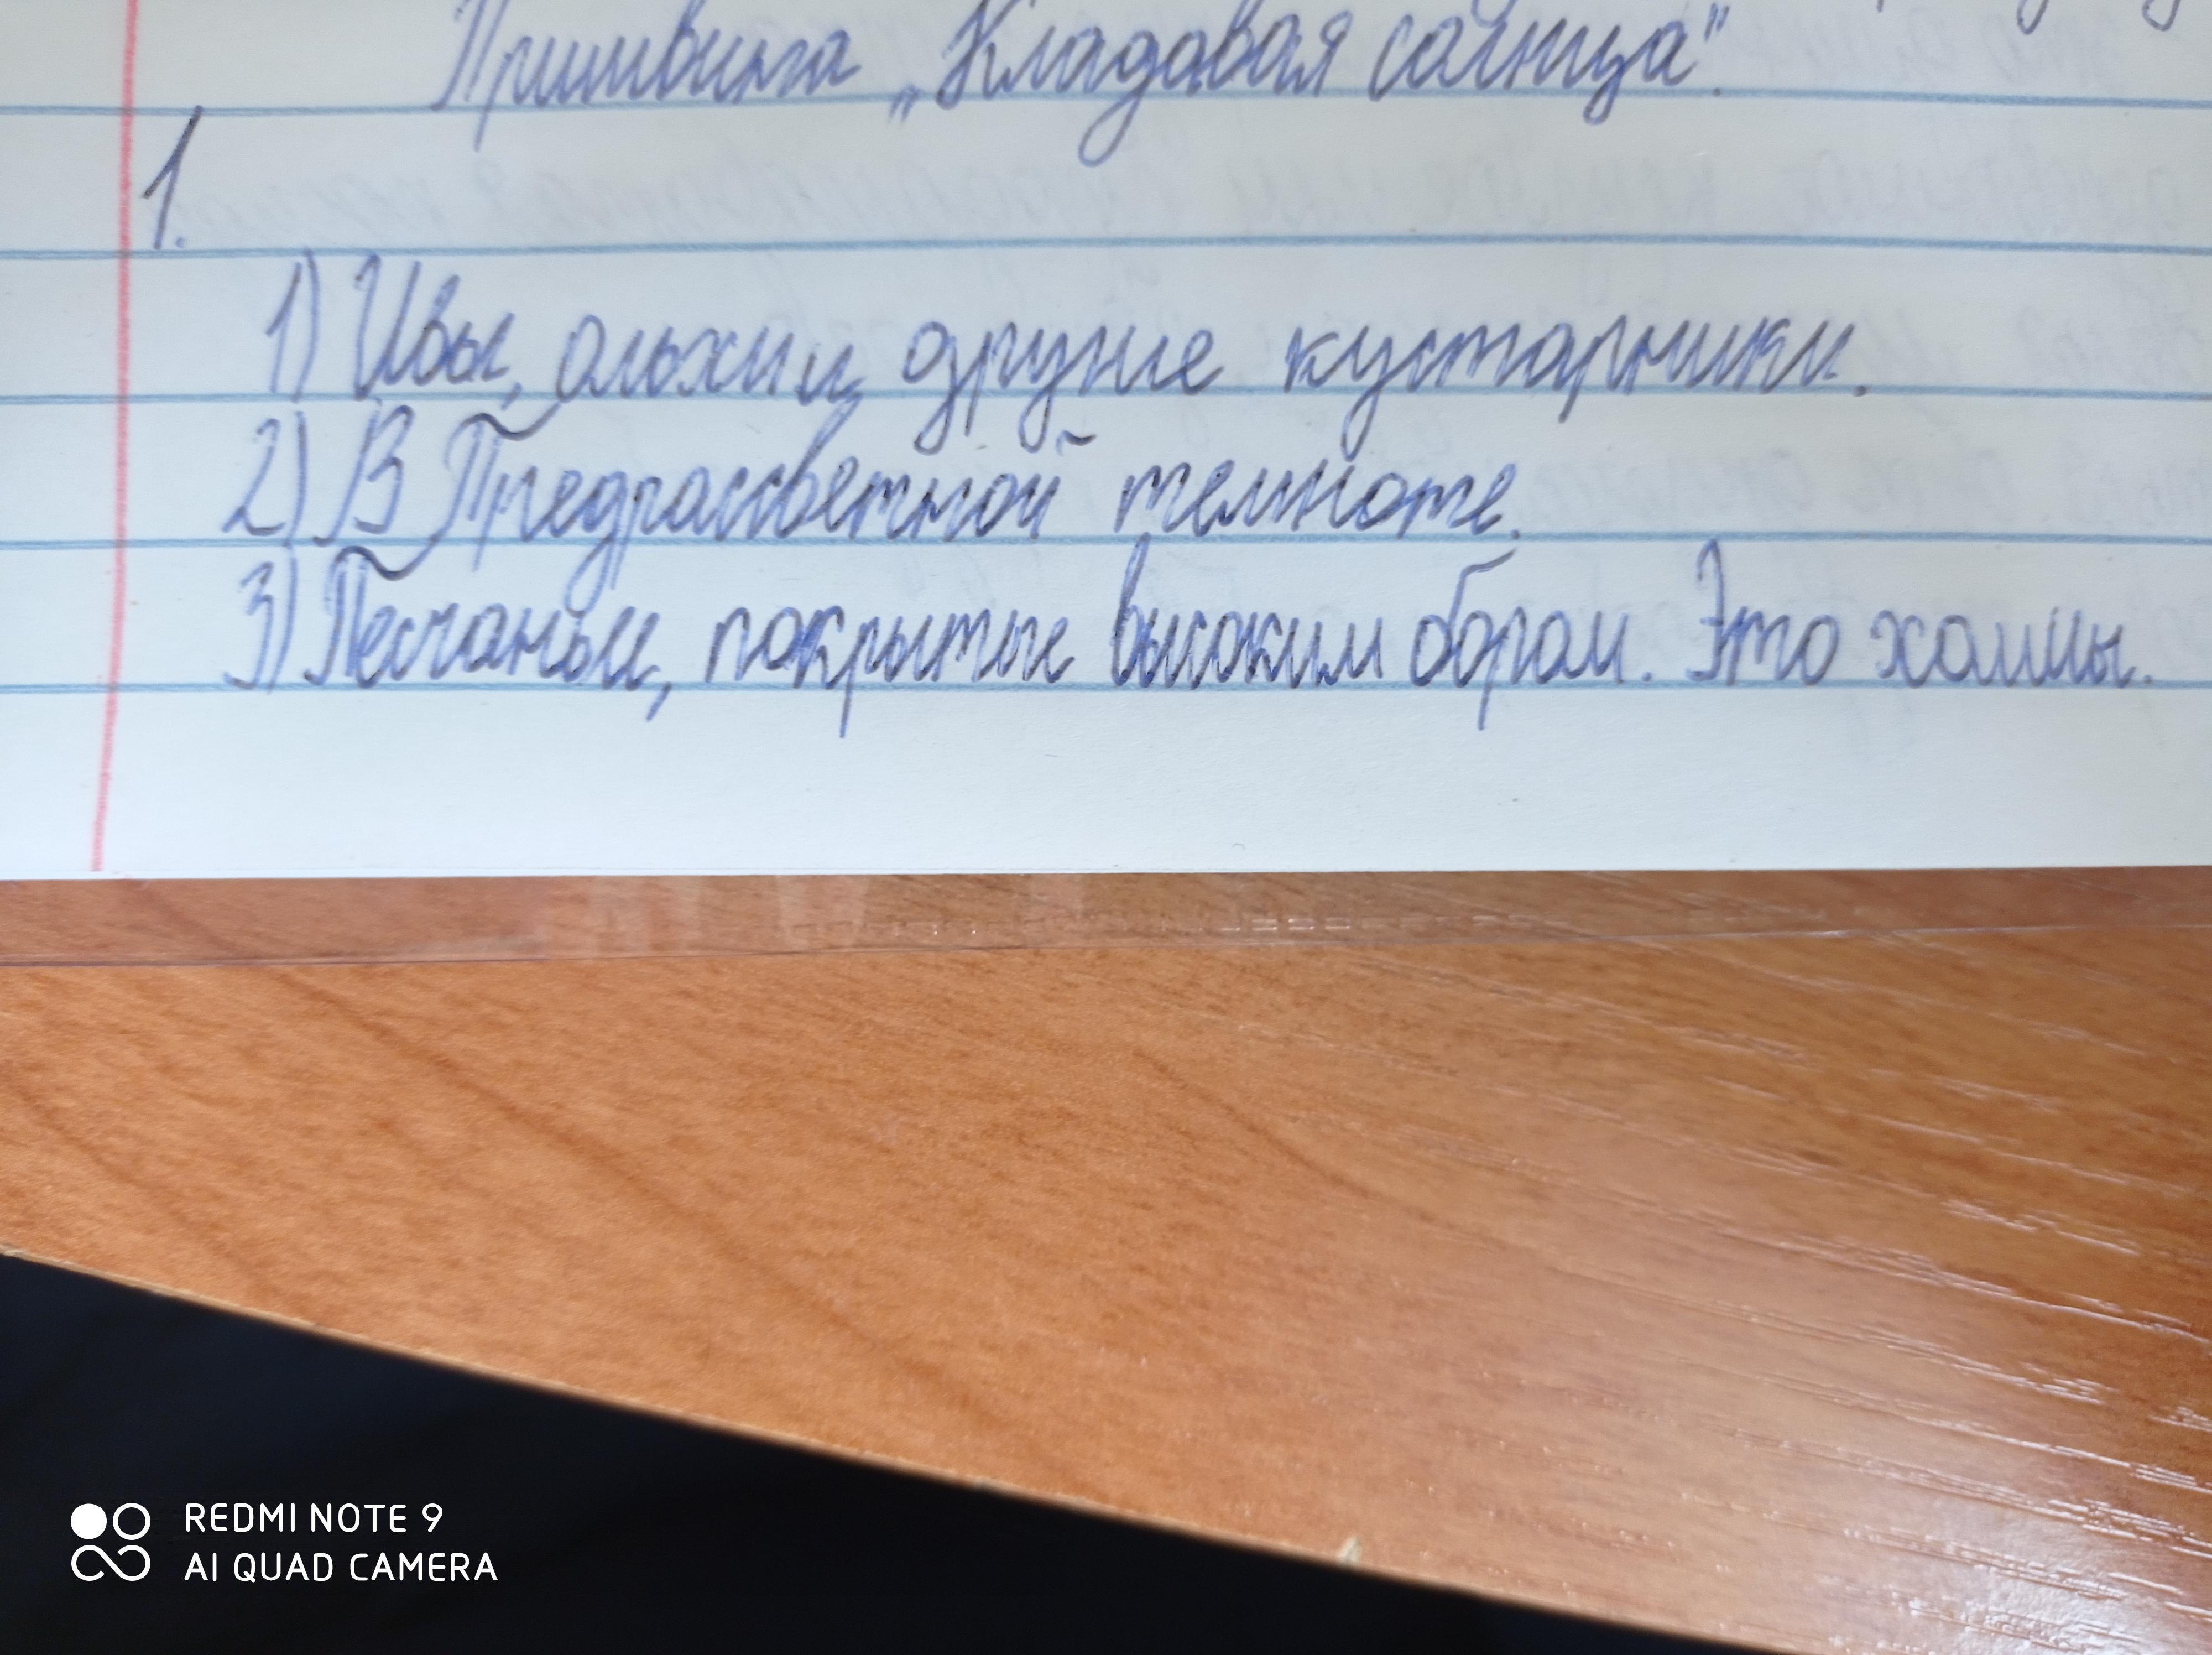 Пришвина „Кладовая солнца".
1.
1) Ивы, ольхи и другие кустарники.
2) В Предрассветной темноте.
3) Песчаные, покрытые высоким бором. Это холмы.
REDMI NOTE 9
AI QUAD CAMERA